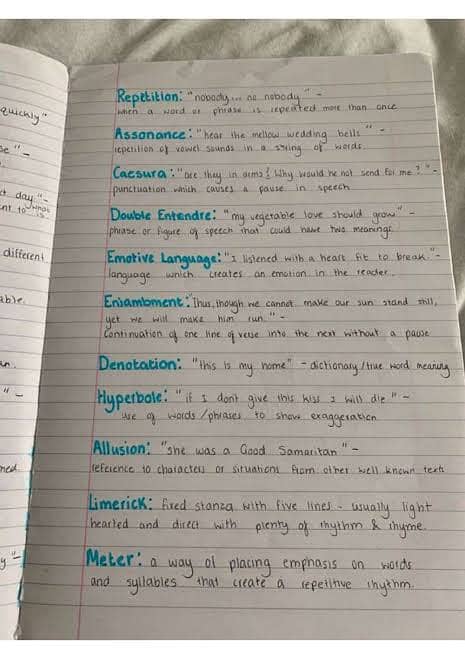 quickly"
se" -
ct day" -
what
ent to is.
different
able.
an.
" -
ned
y" -
Repetition: "nobody... no nobody" -
when a word or phrase is repeated more than once
Assonance: "hear the mellow wedding bells" -
repetition of vowel sounds in a string of words.
Caesura: "are they in arms? Why would he not send for me?" -
punctuation which causes a pause in speech
Double Entendre: "my vegetable love should grow" -
phrase or figure of speech that could have two meanings
Emotive Language: "I listened with a heart fit to break" -
language which creates an emotion in the reader.
Enjambment: "Thus, though we cannot make our sun stand still,
yet we will make him run." -
Continuation of one line of verse into the next without a pause
Denotation: "this is my home" - dictionary/true word meaning
Hyperbole: "if I don't give this kiss I will die" -
use of words/phrases to show exaggeration
Allusion: "she was a Good Samaritan" -
reference to characters or situations from other well known texts
Limerick: fixed stanza with five lines - usually light
hearted and direct with plenty of rhythm & rhyme.
Meter: a way of placing emphasis on words
and syllables that create a repetitive rhythm.